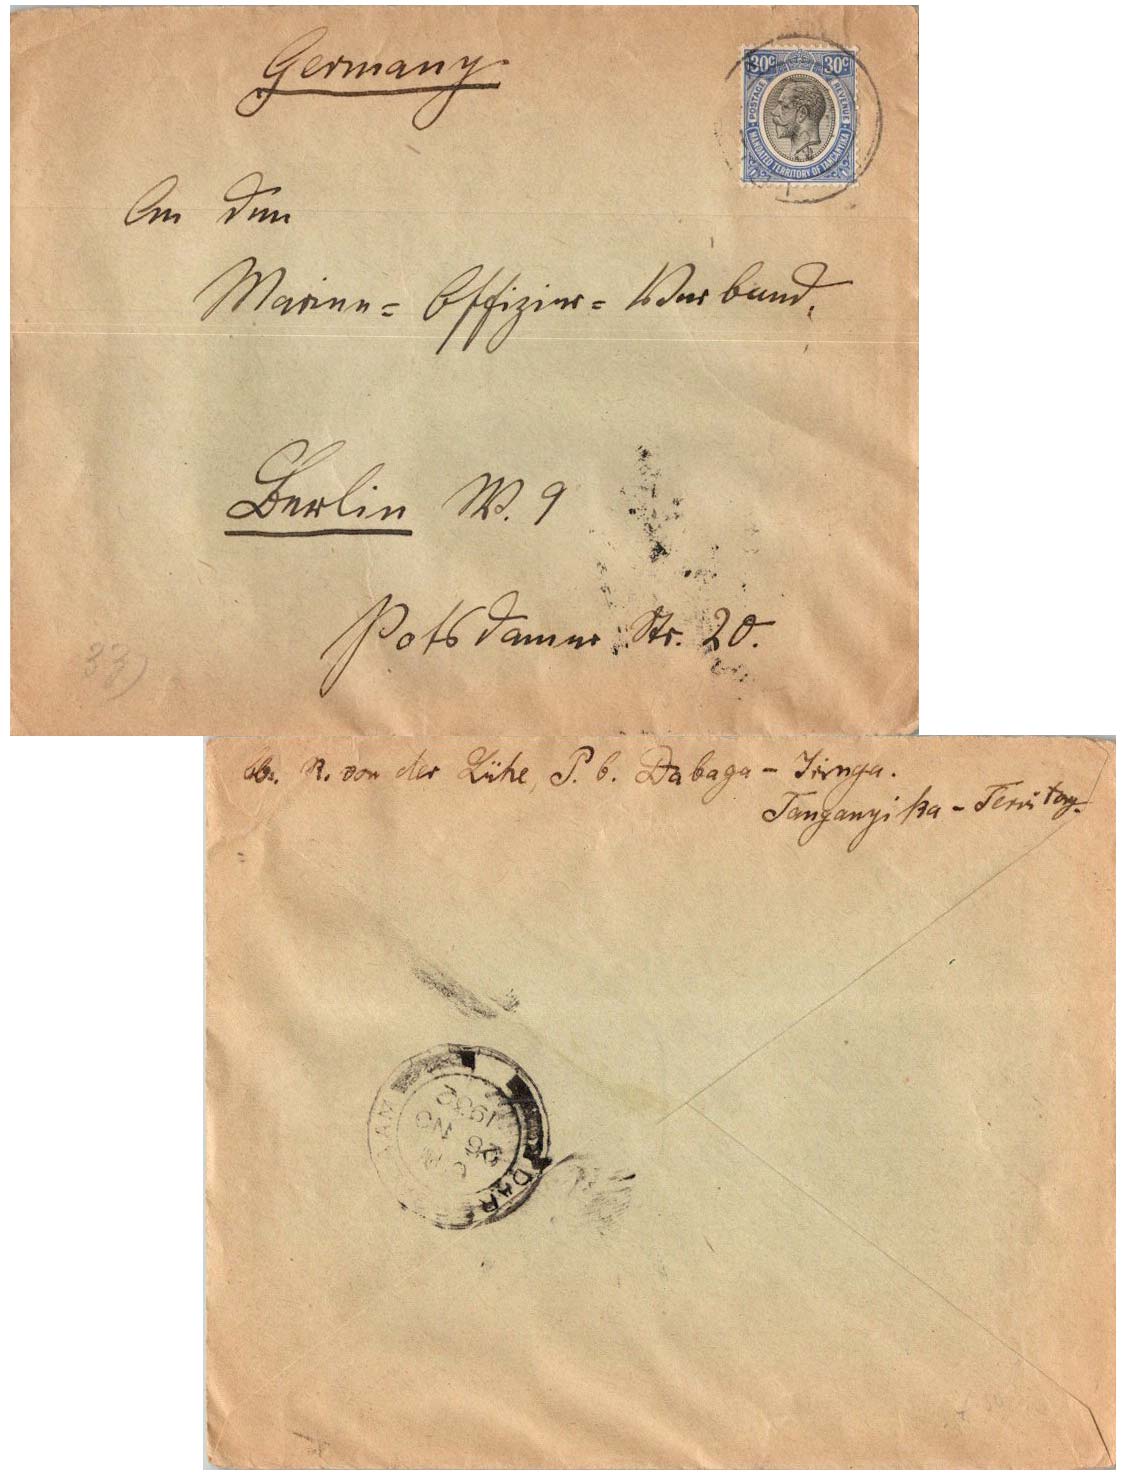 Germany
30c 30c
POSTAGE REVENUE
MANDATED TERRITORY OF TANGANYIKA
An den
Marine = Offizier = Verband.
Berlin W. 9
Potsdamer Str. 20.
33)
R. von der Lühe, P. b. Dabaga - Iringa.
Tanganyika - Territory.
DAR AAM
26 NO
1932